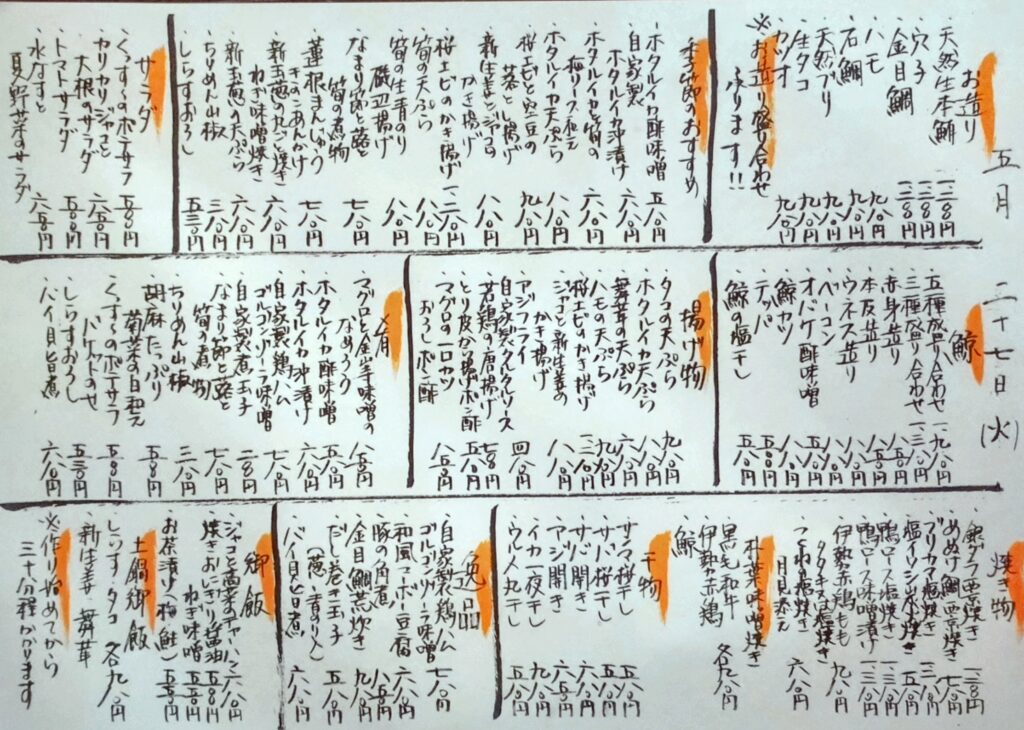 五月二十七日(火)
お造り
・天然生本鮪 一二八〇円
・穴子 一二八〇円
・金目鯛 一二八〇円
・ハモ 九八〇円
・石鯛 九八〇円
・天然ブリ 九八〇円
・生タコ 九八〇円
・カツオ 九八〇円
※お造り盛り合わせ
ふります!!
季節のおすすめ
・ホタルイカ酢味噌 五八〇円
・自家製
ホタルイカ沖漬け 六八〇円
・ホタルイカと筍の
梅リース添え 六八〇円
・ホタルイカ天ぷら 八八〇円
・桜エビと空豆の
落とし揚げ 九八〇円
・新生姜とジャコの
かき揚げ 八八〇円
・桜エビのかき揚げ 一二八〇円
・筍の天ぷら 八八〇円
・筍の生青のり
磯辺揚げ 八八〇円
・なまり節と蕗と
筍の煮物 七八〇円
・蓮根まんじゅう
きのこあんかけ 七八〇円
・新玉葱の丸ごと焼き
ねぎ味噌焼き 六八〇円
・新玉葱の天ぷら 六八〇円
・ちりめん山椒 三八〇円
・しらすおろし 五三〇円
サラダ
・くずし〜のポテサラ 五八〇円
・カリカリジャコと
大根のサラダ 六五〇円
・トマトサラダ 五八〇円
・水なすと
夏野菜のサラダ 六五〇円
鯨
・五種盛り合わせ 一九八〇円
・三種盛り合わせ 一三八〇円
・赤身造り
・本皮造り
・ウネス造り
・ベーコン
・オバケ酢味噌
・鯨カツ
・テッパ
・鯨の塩干し
揚げ物
・タコの天ぷら 九八〇円
・ホタルイカ天ぷら 八八〇円
・舞茸の天ぷら 六八〇円
・ハモの天ぷら 九八〇円
・桜エビのかき揚げ
・ジャコと新生姜の
かき揚げ 八八〇円
・アジフライ
・自家製タルタルソース
・若鶏の唐揚げ
・とり皮から揚げポン酢 五八〇円
・マグロの一口カツ
おろしポン酢 八五〇円
肴
・マグロと金山寺味噌の
なめろう 八五〇円
・ホタルイカ酢味噌 五八〇円
・ホタルイカ沖漬け 六八〇円
・自家製鶏ハム
ゴルゴンゾーラ味噌 七八〇円
・自家製煮玉子 二八〇円
・なまり節と蕗と
筍の煮物 七八〇円
・ちりめん山椒 三八〇円
・胡麻たっぷり
菊菜の白和え 五八〇円
・くずし〜のポテサラ
バケットのせ 五八〇円
・しらすおろし 五三〇円
・バイ貝旨煮 六八〇円
焼き物
・銀ダラ西京焼き 一二八〇円
・めぬけ鯛西京焼き
・ブリカマ塩焼き
・塩イワシ山水焼き
・鴨ロース塩焼き
・鴨ロース味噌漬け 一三八〇円
・伊勢赤鶏もも
タタキ又は塩焼き 九八〇円
・つくね塩焼き
月見添え 六八〇円
朴葉味噌焼き
・黒毛和牛
・伊勢赤鶏
・鯨 各九八〇円
干物
・サンマ桜干し 五八〇円
・サバ桜干し 五八〇円
・サバ開き
・アジ開き 六五〇円
・イカ一夜干し 九八〇円
・ウルメ丸干し 五八〇円
逸品
・自家製鶏ハム
ゴルゴンゾーラ味噌 七八〇円
・和風マーボー豆腐 六八〇円
・豚の角煮 八五〇円
・金目鯛荒炊き 九八〇円
・だし巻き玉子
(葱・青のり入) 五八〇円
・バイ貝旨煮 六八〇円
御飯
・ジャコと高菜のチャーハン 六八〇円
・焼きおにぎり(醤油
ねぎ味噌) 五八〇円
・お茶漬け(梅・鮭) 五五〇円
土鍋御飯
・しらす・タコ 各九八〇円
・新生姜・舞茸
※作り始めてから
三十分程かかります